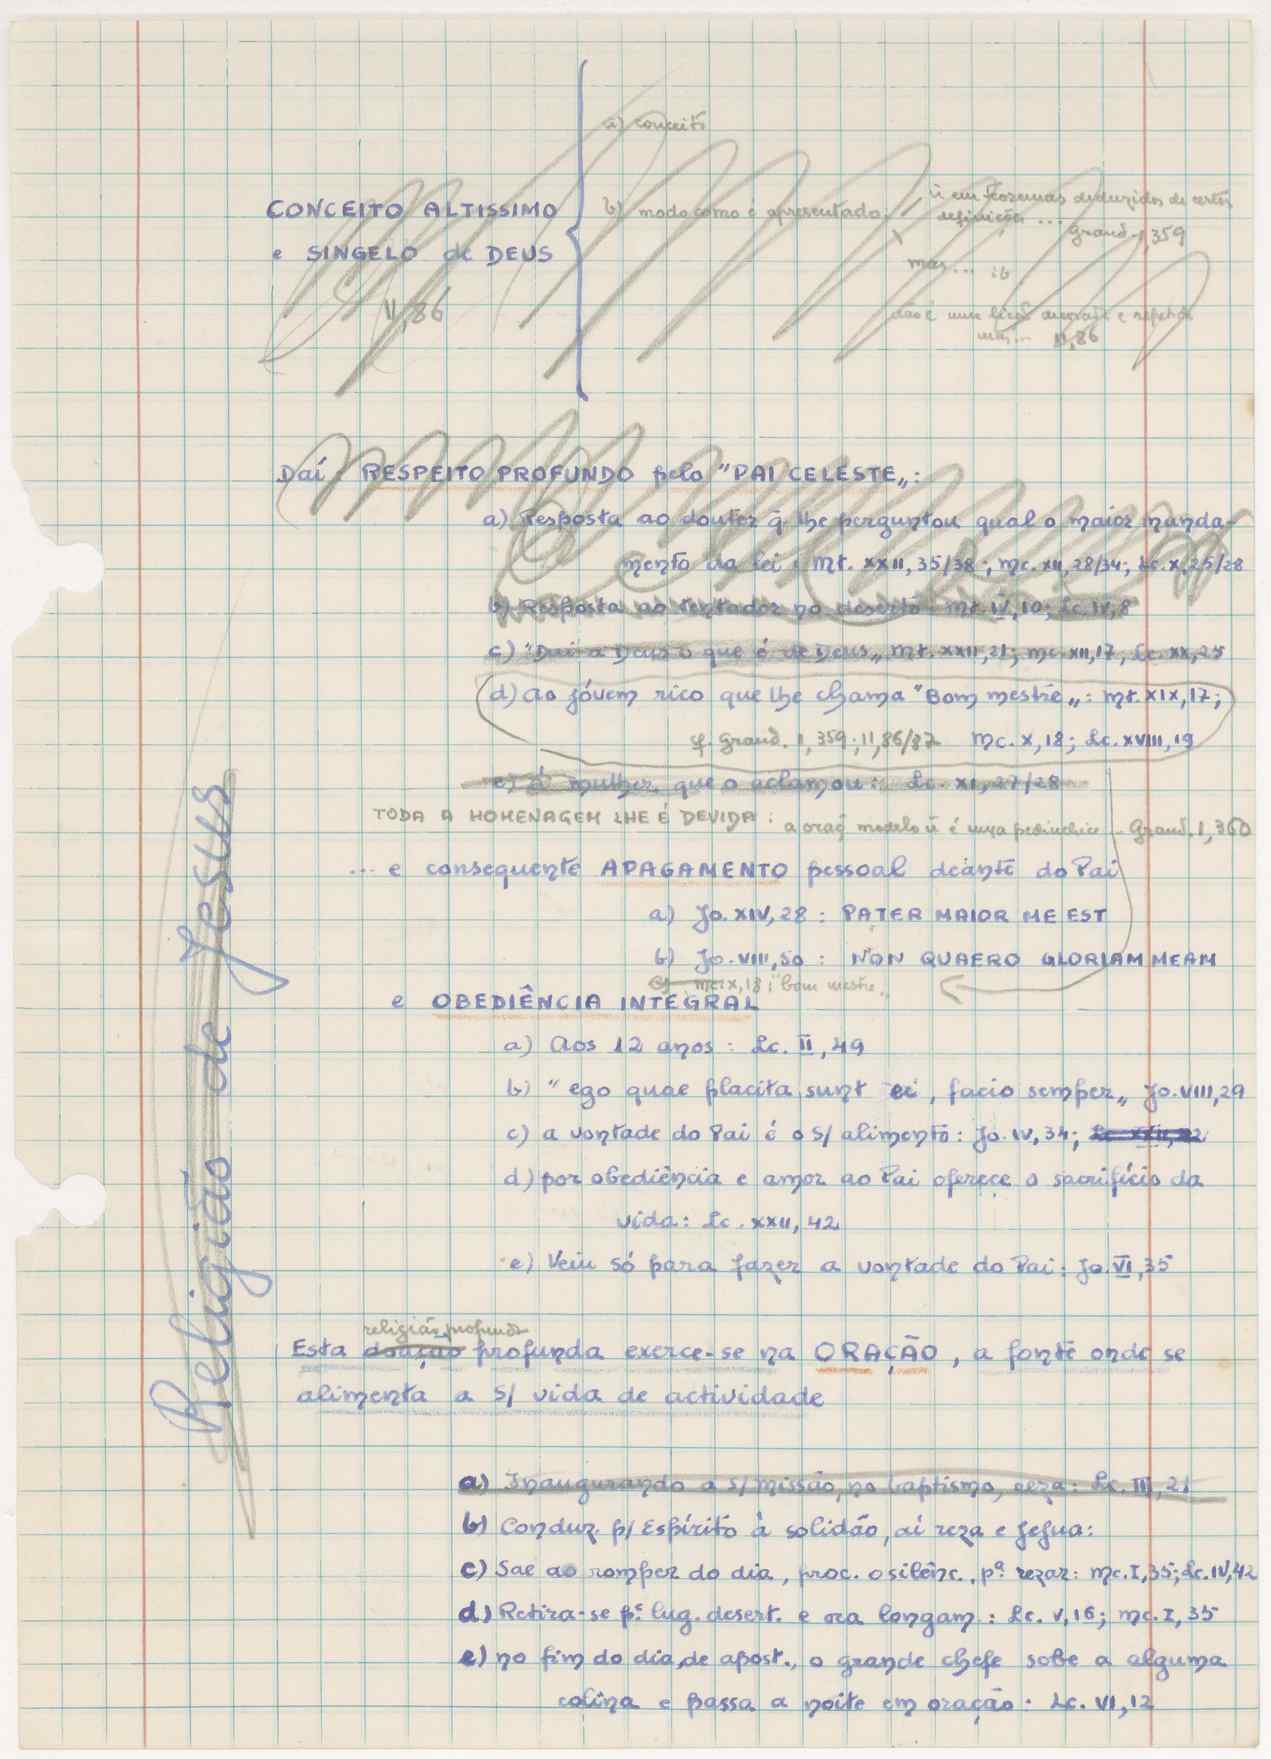 a) conceito
CONCEITO ALTISSIMO
e SINGELO de DEUS
II,86
b) modo como é apresentado
ñ em teoremas deduzidos de certas
definições ...
Grand. I, 359
mas ... ib
não é uma lição decorada e repetida
mas ... II,86
Daí RESPEITO PROFUNDO pelo "PAI CELESTE":
a) Resposta ao doutor q̃ lhe perguntou qual o maior manda-
mento da lei: Mt. XXII, 35/38; Mc. XII, 28/34; Lc. X, 25/28
b) Resposta ao tentador no deserto: Mt. IV, 10; Lc. IV, 8
c) "Dai a Deus o que é de Deus" Mt. XXII, 21; Mc. XII, 17; Lc. XX, 25
d) Ao jóvem rico que lhe chama "Bom mestre": Mt. XIX, 17;
cf. Grand. I, 359; II, 86/87 Mc. X, 18; Lc. XVIII, 19
e) À mulher que o aclamou: Lc. XI, 27/28
TODA A HOMENAGEM LHE É DEVIDA: a oraç modelo ñ é uma pedinchice ... Grand. I, 360
... e consequente APAGAMENTO pessoal deante do Pai
a) Jo. XIV, 28: PATER MAIOR ME EST
b) Jo. VIII, 50: NON QUAERO GLORIAM MEAM
c) Mc. X, 18; "bom mestre"
e OBEDIÊNCIA INTEGRAL
a) Aos 12 anos: Lc. II, 49
b) "ego quae placita sunt ei, facio semper" Jo. VIII, 29
c) a vontade do Pai é o S/ alimento: Jo. IV, 34; Lc. XXII, 42
d) por obediência e amor ao Pai oferece o sacrifício da
vida: Lc. XXII, 42
e) Veiu só para fazer a vontade do Pai: Jo. VI, 35
Religião de Jesus
religião profunda
Esta doação profunda exerce-se na ORAÇÃO, a fonte onde se
alimenta a S/ vida de actividade
a) Inaugurando a S/ missão, no baptismo, reza: Lc. III, 21
b) Conduz. p/ Espírito à solidão, aí reza e jejua:
c) Sae ao romper do dia, proc. o silênc., pª rezar: Mc. I, 35; Lc. IV, 42
d) Retira-se pª lug. desert. e ora longam.: Lc. V, 16; Mc. I, 35
e) no fim do dia, de apost., o grande chefe sobe a alguma
colina e passa a noite em oração: Lc. VI, 12